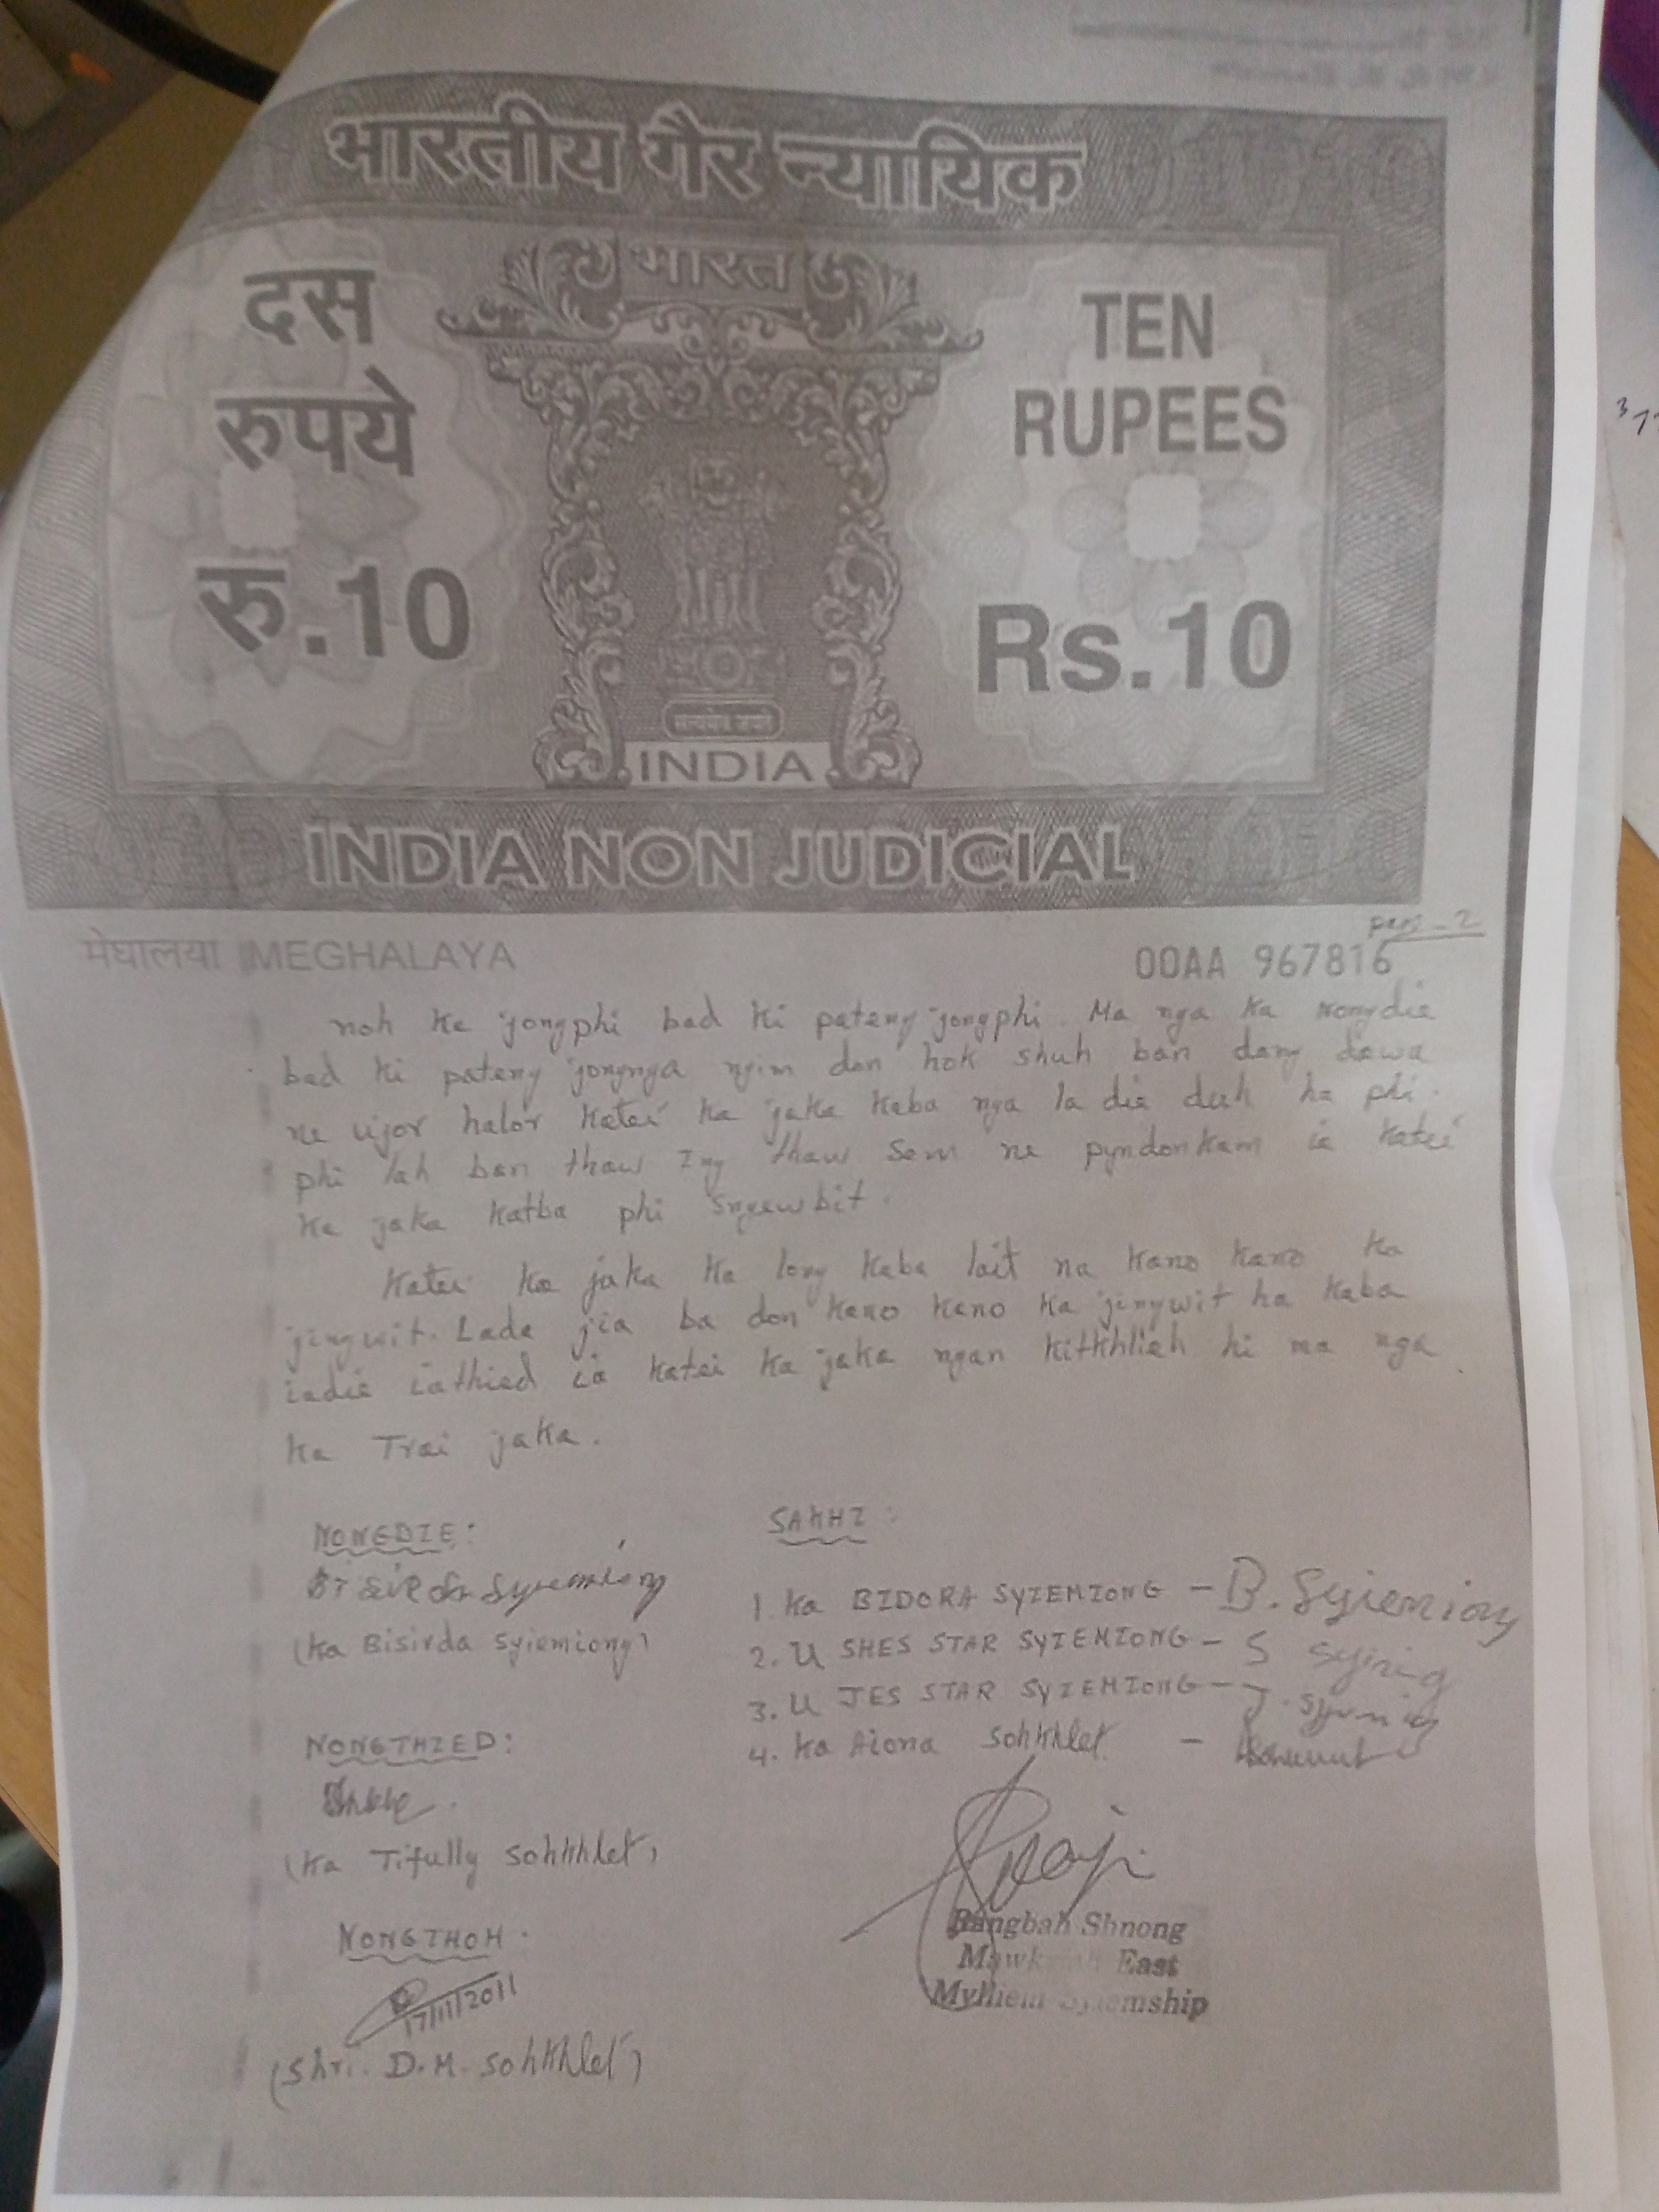 भारतीय गैर न्यायिक
भारत
दस
रुपये
रु.10
TEN
RUPEES
Rs.10
सत्यमेव जयते
INDIA
INDIA NON JUDICIAL
मेघालया MEGHALAYA
00AA 967816
noh ka jongphi bad ki pateng jongphi. Ma nga ka nongdie
bad ki pateng jongnga ngim don hok shuh ban dang dawa
ne ujor halor katei ka jaka kaba nga la die duh ha phi.
phi lah ban thaw Ing thaw Sem ne pyndonkam ia katei
ka jaka katba phi sngewbit.
Katei ka jaka ka long kaba lait na kano kano ka
jingwit. Lada jia ba don kano kano ka jingwit ha kaba
iadie iathied ia katei ka jaka ngan kitkhlieh hi ma nga
ka Trai jaka.
NONGDIE:
Bisirda Syiemiong
(Ka Bisirda Syiemiong)
NONGTHIED:
(Ka Tifully Sohkhlet)
NONGTHOH.
17/11/2011
(Shri. D.M. Sohkhlet)
SAKHI:
1. Ka BIDORA SYIEMIONG - B. Syiemiong
2. U SHES STAR SYIEMIONG - S
3. U JES STAR SYIEMIONG - J.
4. Ka Aiona Sohkhlet -
Rangbah Shnong
East
Mylliem Syiemship